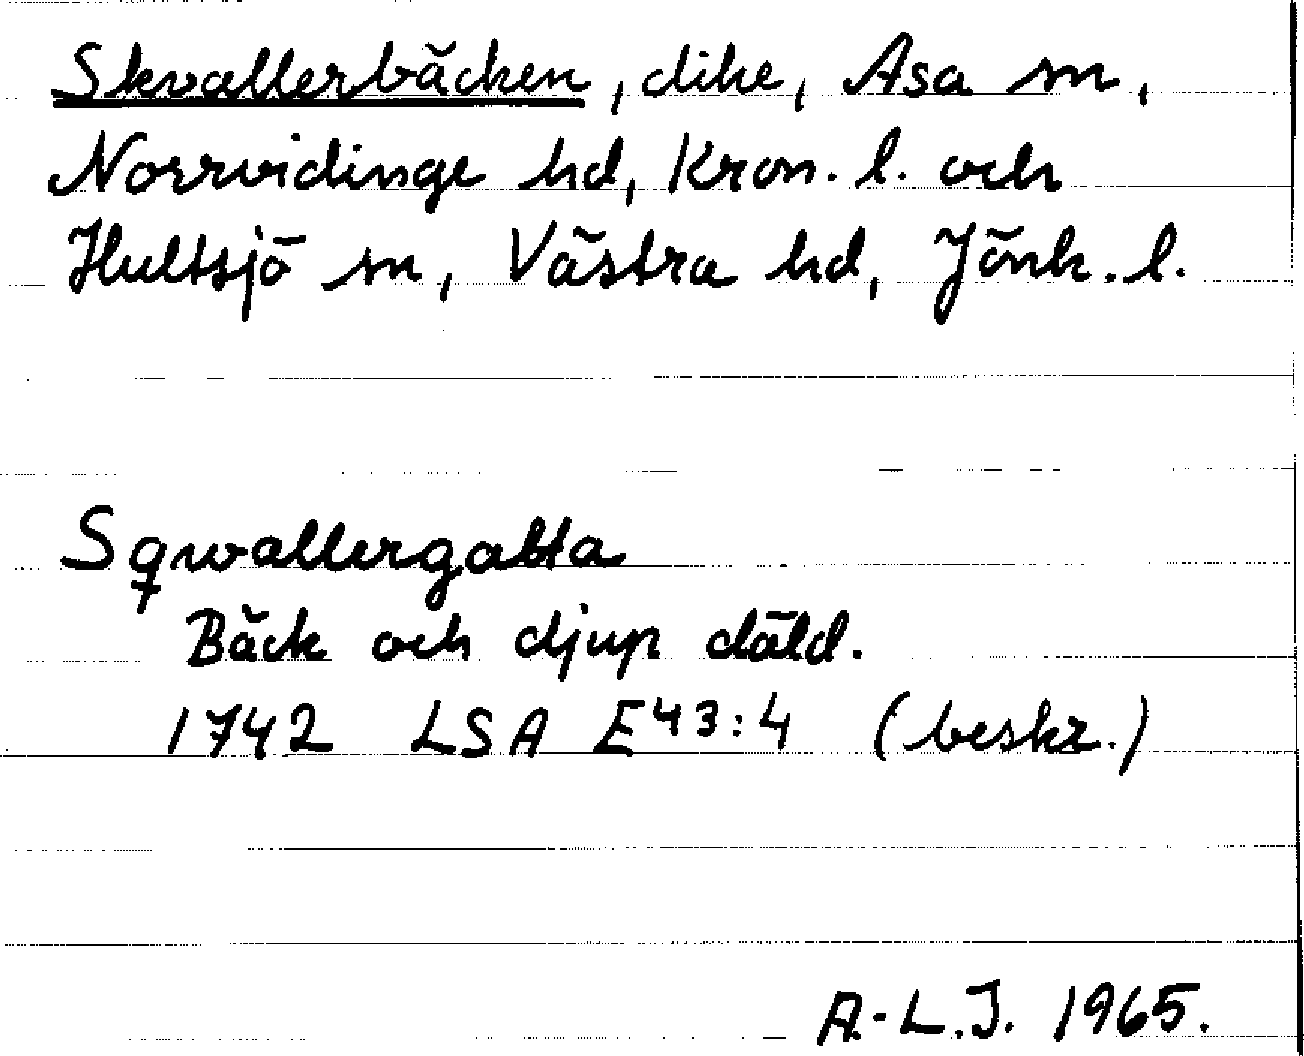 Skvallerbäcken, dike, Asa sn,
Norrvidinge hd, Kron. l. och
Hultsjö sn, Västra hd, Jönk. l.
Sqwallergatta
Bäck och djup däld.
1742 LSA E43:4 (beskr.)
A.-L.J. 1965.